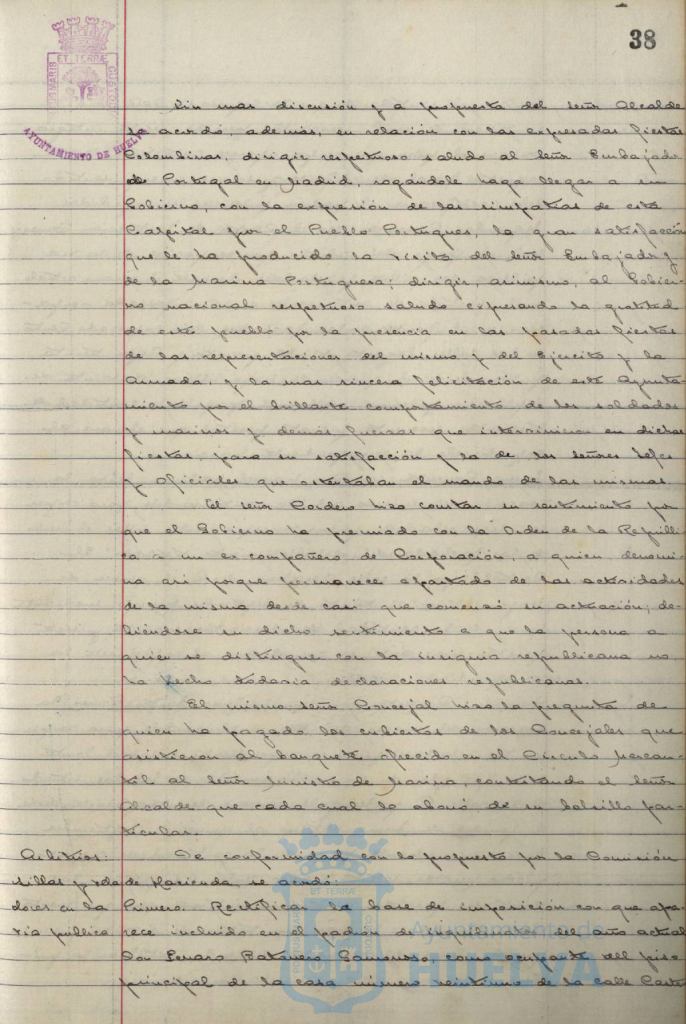 38
ET TERRÆ
AYUNTAMIENTO DE HUELVA
Sin mas discusión y a propuesta del señor Alcalde
se acordó, además, en relación con las expresadas fiestas
Colombinas, dirigir respetuoso saludo al Señor Embajador
de Portugal en Madrid, rogándole haga llegar a su
Gobierno, con la expresión de las simpatías de esta
Capital por el Pueblo Portugues, la gran satisfacción
que le ha producido la visita del Señor Embajador y
de la Marina Portuguesa; dirigir, asimismo, al Gobier-
no nacional respetuoso saludo expresando la gratitud
de este pueblo por la presencia en las pasadas fiestas
de las representaciones del mismo y del Ejercito y la
Armada, y la mas sincera felicitación de este Ayunta-
miento por el brillante comportamiento de los soldados
y marinos y demás fuerzas que intervinieron en dichas
fiestas, para su satisfacción y la de los señores Jefes
y Oficiales que ostentaban el mando de las mismas.
El señor Cordero hizo constar su sentimiento por
que el Gobierno ha premiado con la Orden de la Repúbli-
ca a un ex compañero de Corporación, a quien denomi-
na asi porque permanece apartado de las actividades
de la misma desde casi que comenzó su actuación; de-
biéndose su dicho sentimiento a que la persona a
quien se distingue con la insignia republicana no
ha hecho todavia declaraciones republicanas.
El mismo señor Concejal hizo la pregunta de
quien ha pagado los cubiertos de los Concejales que
asistieron al banquete ofrecido en el Círculo Mercan-
til al Señor Ministro de Marina, contestando el Señor
Alcalde que cada cual lo abonó de su bolsillo par-
ticular.
Arbitrios: De conformidad con lo propuesto por la Comisión
sillas y vela de Hacienda, se acordó:
dores en la Primero. Rectificar la base de imposición con que apa-
via pública rece incluido en el padrón de inquilinato del año actual
Don Genaro Batanero Gamonoso, como ocupante del piso
principal de la casa número veintiuno de la calle
Ayuntamiento de
HUELVA